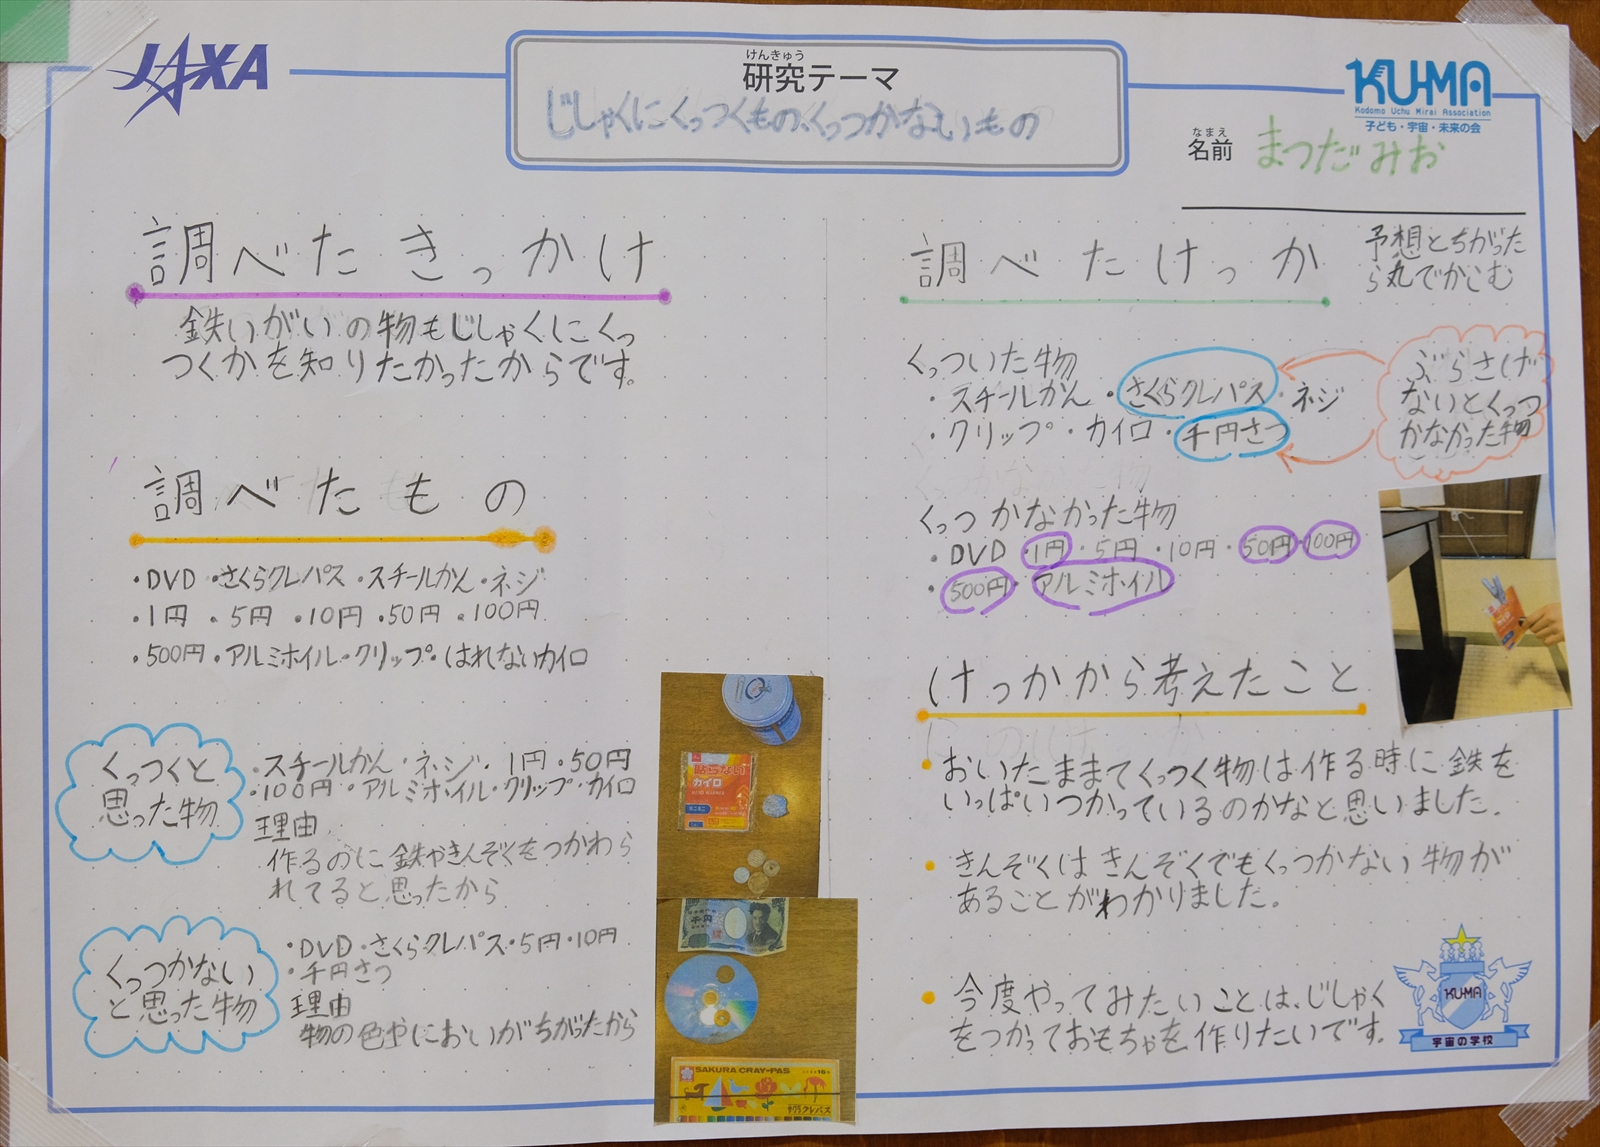 JAXA
けんきゅう
研究テーマ
じしゃくにくっつくもの、くっつかないもの
KU-MA
Kodomo Uchu Mirai Association
子ども・宇宙・未来の会
なまえ
名前 まつだみお
調べたきっかけ
鉄いがいの物もじしゃくにくっ
つくかを知りたかったからです。
調べたもの
・DVD・さくらクレパス・スチールかん・ネジ
・1円・5円・10円・50円・100円
・500円・アルミホイル・クリップ・はれないカイロ
くっつくと
思った物
・スチールかん・ネジ・1円・50円
・100円・アルミホイル・クリップ・カイロ
理由
作るのに鉄やきんぞくをつかわら
れてると思ったから
くっつかない
と思った物
・DVD・さくらクレパス・5円・10円
・千円さつ
理由
物の色やにおいがちがったから
貼らない
カイロ
千円
SAKURA CRAY-PAS
サクラクレパス
調べたけっか
予想とちがった
ら丸でかこむ
くっついた物
・スチールかん・さくらクレパス・ネジ
・クリップ・カイロ・千円さつ
ぶらさげ
ないとくっつ
かなかった物
くっつかなかった物
・DVD・1円・5円・10円・50円・100円
・500円・アルミホイル
けっかから考えたこと
・おいたままでくっつく物は作る時に鉄を
いっぱいつかっているのかなと思いました。
・きんぞくはきんぞくでもくっつかない物が
あることがわかりました。
・今度やってみたいことは、じしゃく
をつかっておもちゃを作りたいです。
KU-MA
宇宙の学校